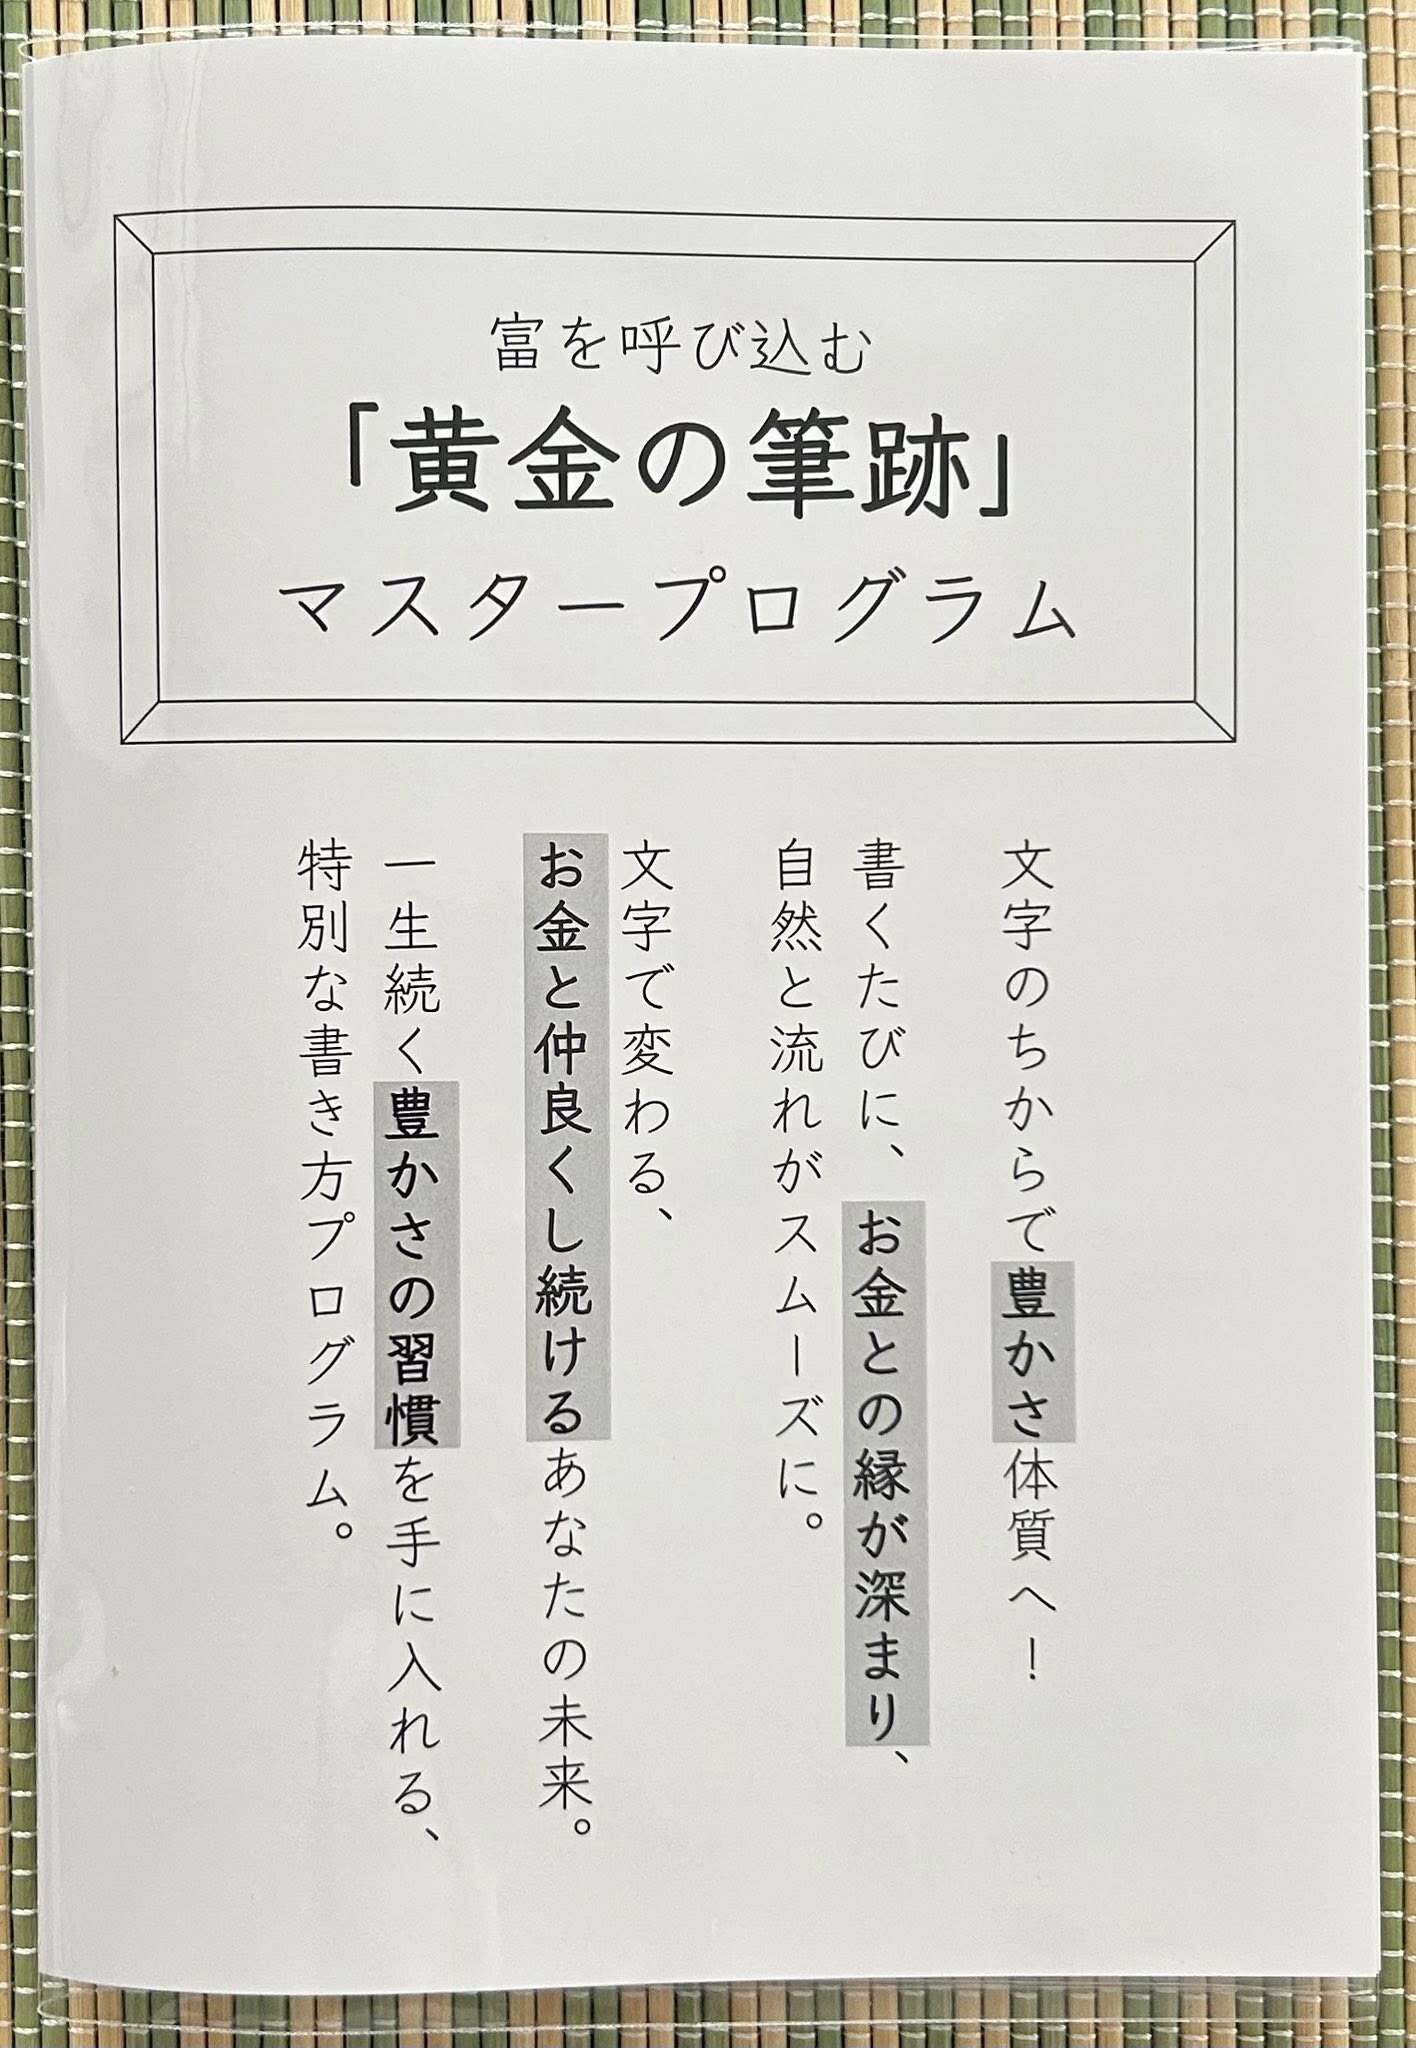 富を呼び込む
「黄金の筆跡」
マスタープログラム
文字のちからで豊かさ体質へ！
書くたびに、お金との縁が深まり、
自然と流れがスムーズに。
文字で変わる、
お金と仲良くし続けるあなたの未来。
一生続く豊かさの習慣を手に入れる、
特別な書き方プログラム。